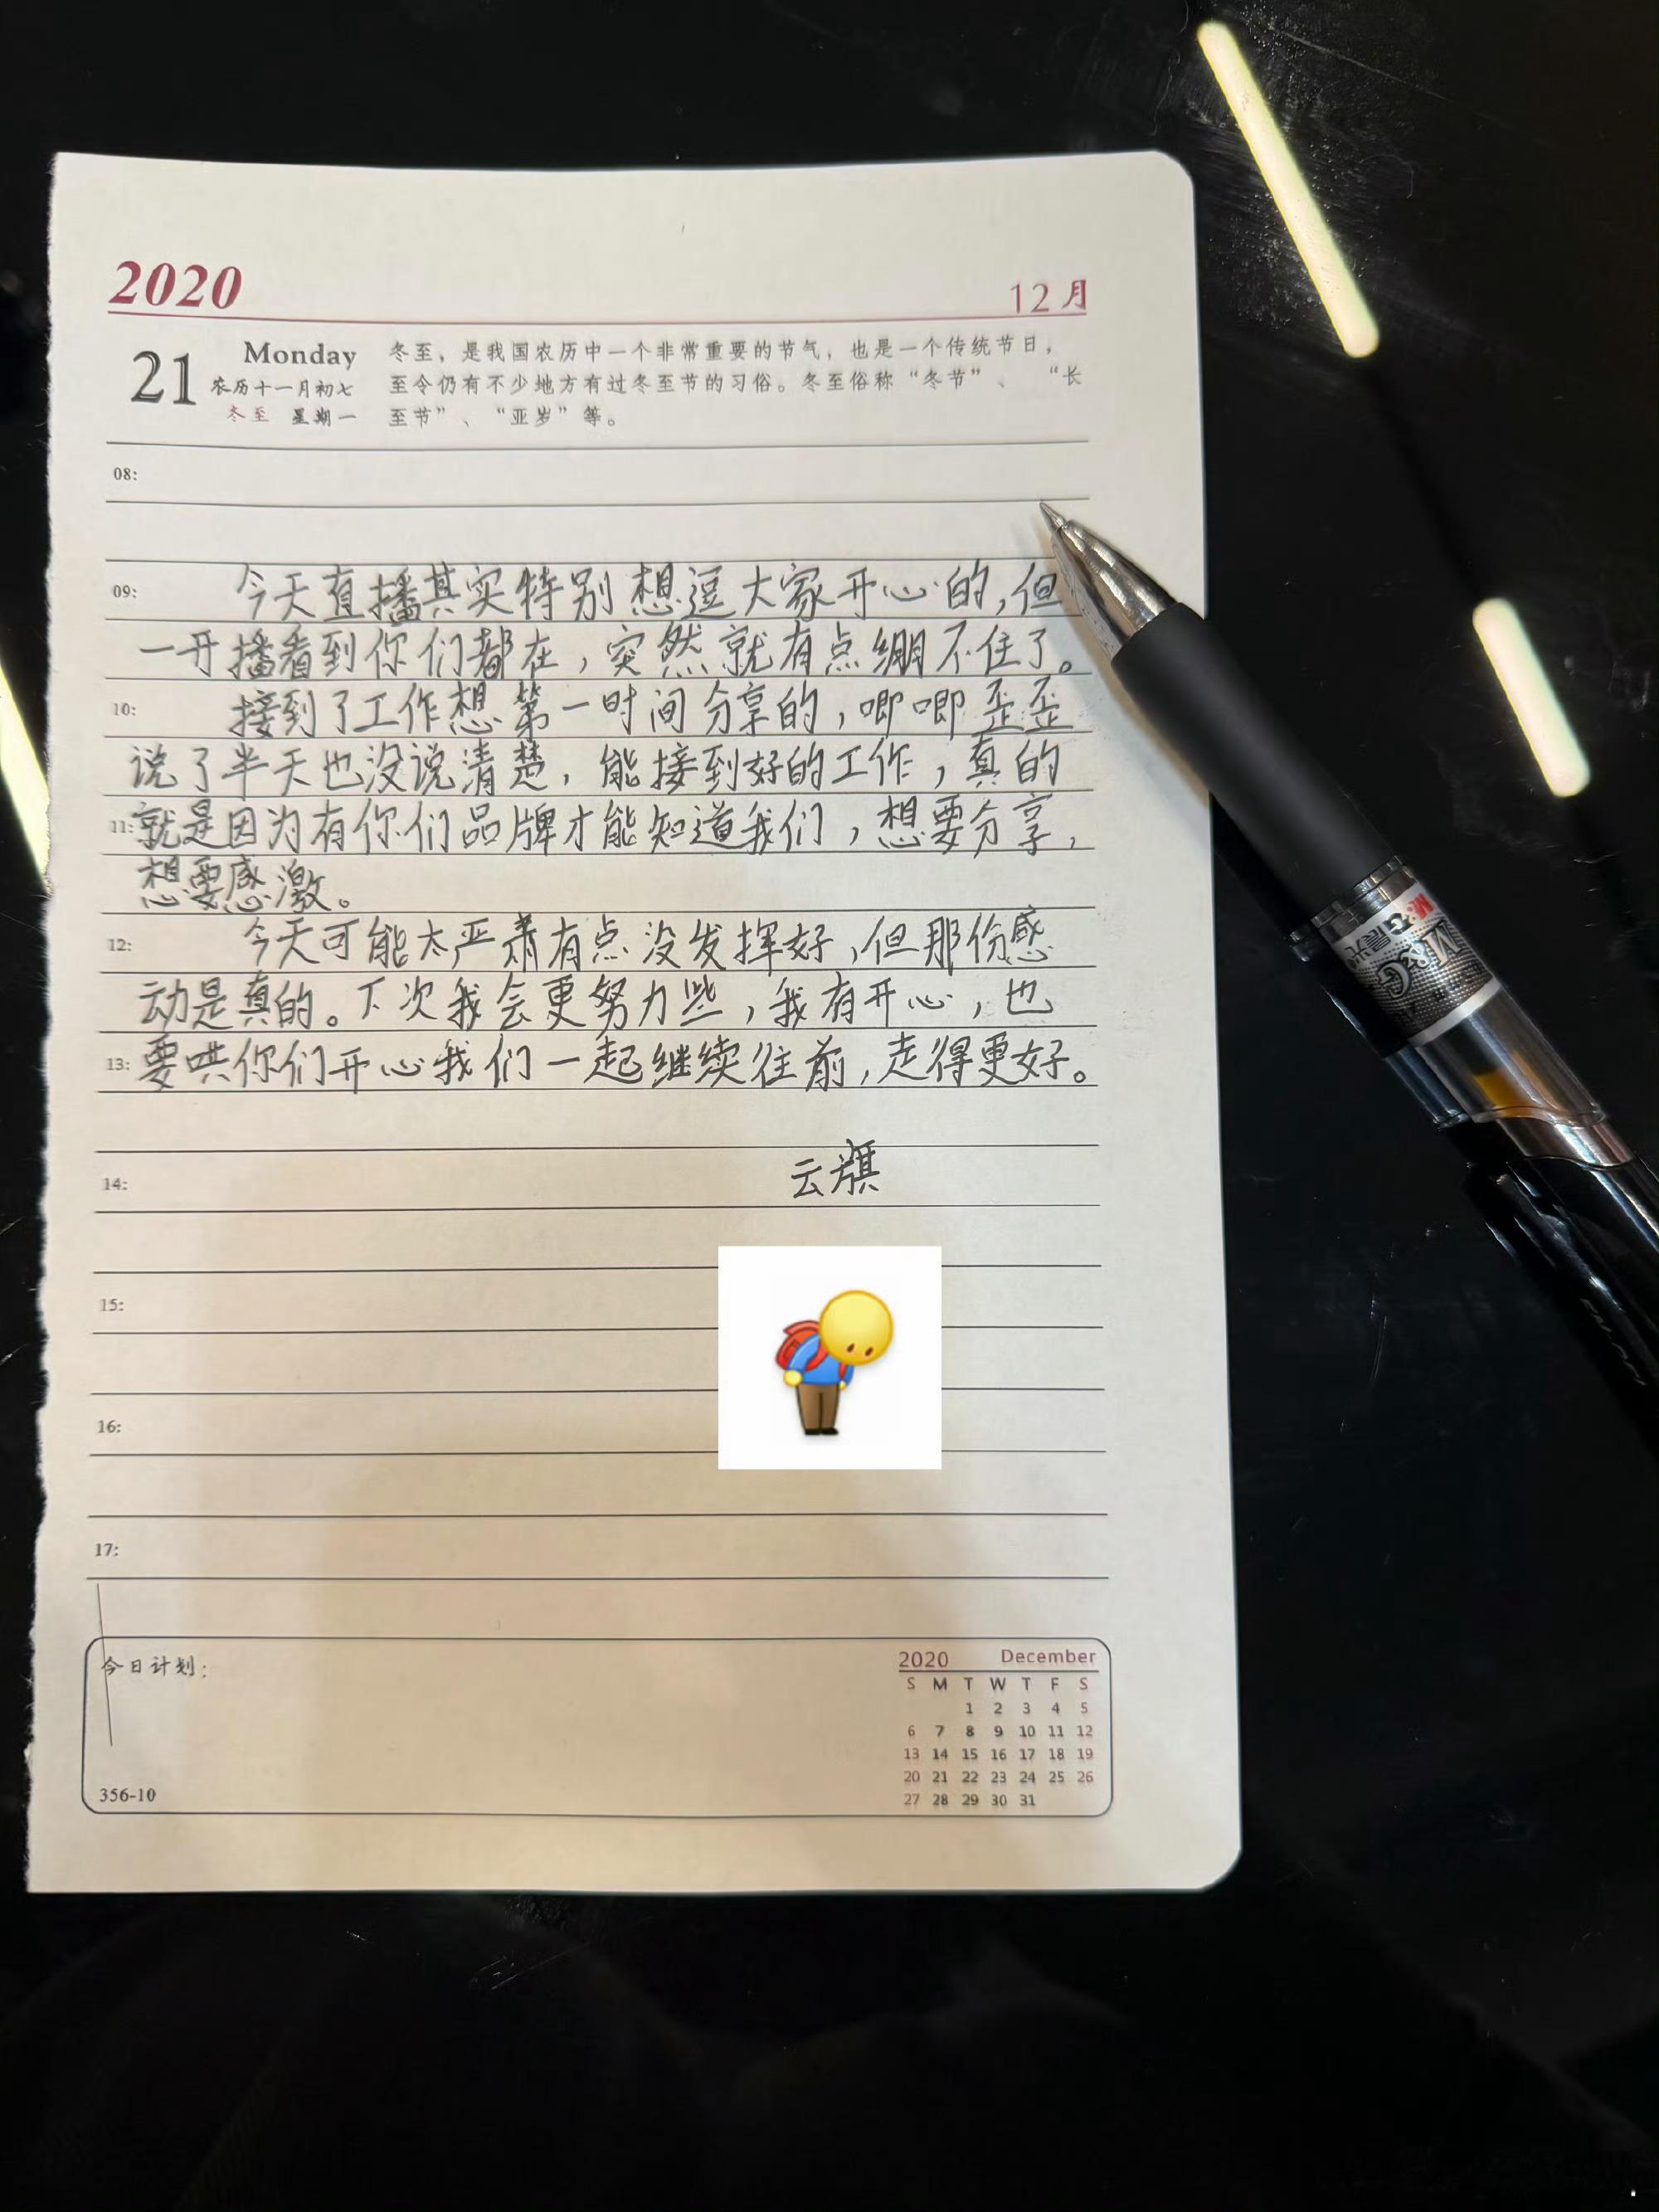 2020
12月
21
Monday
农历十一月初七
冬至 星期一
冬至，是我国农历中一个非常重要的节气，也是一个传统节日，
至今仍有不少地方有过冬至节的习俗。冬至俗称“冬节”、“长
至节”、“亚岁”等。
08:
09: 今天直播其实特别想逗大家开心的，但
一开播看到你们都在，突然就有点绷不住了。
10: 接到了工作想第一时间分享的，唧唧歪歪
说了半天也没说清楚，能接到好的工作，真的
11: 就是因为有你们品牌才能知道我们，想要分享，
想要感激。
12: 今天可能太严肃有点没发挥好，但那份感
动是真的。下次我会更努力些，我有开心，也
13: 要哄你们开心我们一起继续往前，走得更好。
14: 云旗
15:
16:
17:
今日计划：
356-10
2020 December
S M T W T F S
1 2 3 4 5
6 7 8 9 10 11 12
13 14 15 16 17 18 19
20 21 22 23 24 25 26
27 28 29 30 31
M&G 晨光
M&G